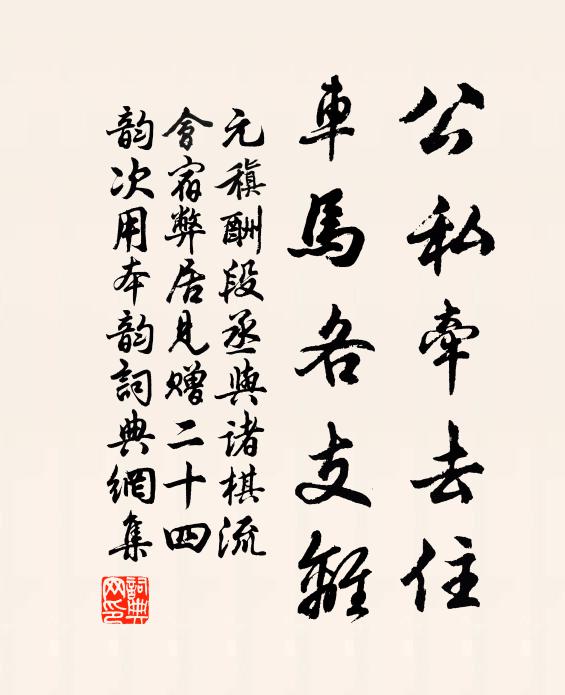 公私牽去住
車馬各支離
元稹酬段丞與諸棋流
會宿弊居見贈二十四
韵次用本韵詞典網集
詞典网印